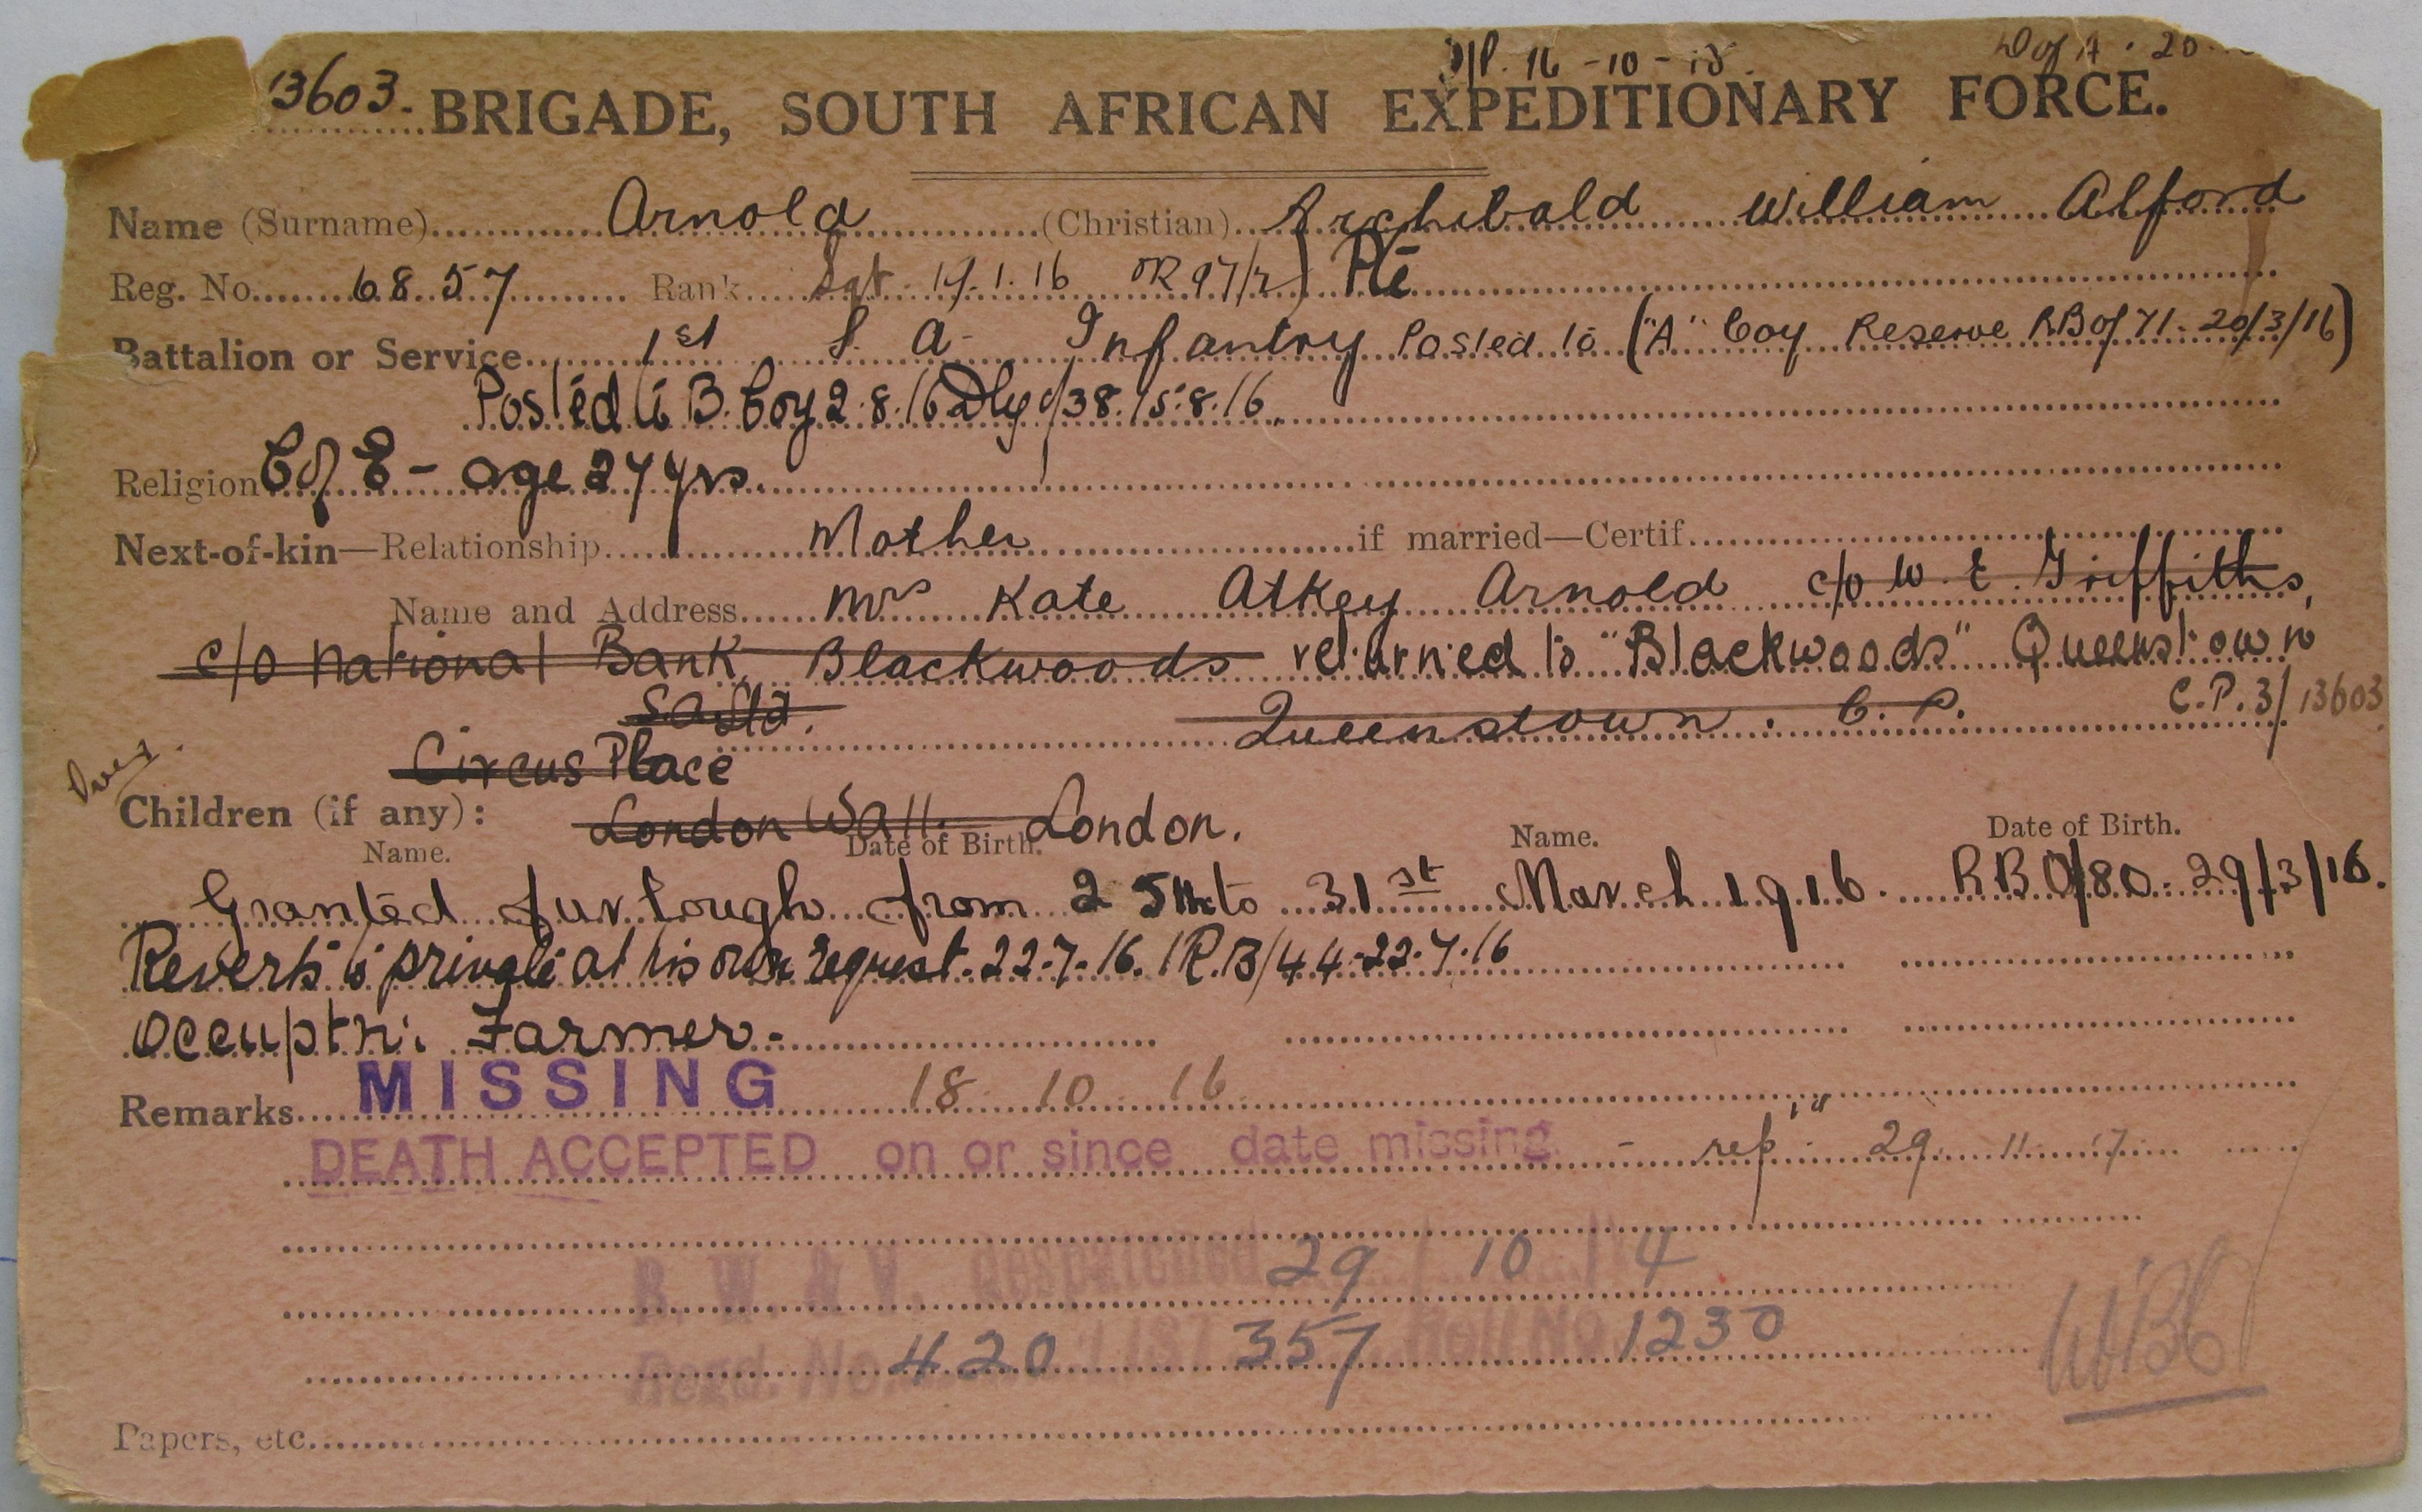 16-10-18. D of A. 20
13603. BRIGADE, SOUTH AFRICAN EXPEDITIONARY FORCE.
Name (Surname) Arnold (Christian) Archibald William Alford
Reg. No. 6857 Rank Sgt 1.16 Pte
Battalion or Service 1st S. A. Infantry Posted to ("A" Coy Reserve RB of 71. 20/3/16)
Posted to B. Coy 2.8.16 Dly of 38. 15.8.16.
Religion C of E - age 27 yrs.
Next-of-kin—Relationship Mother if married—Certif.
Name and Address Mrs Kate Atkey Arnold c/o W. E. Griffiths,
c/o National Bank Blackwoods returned to "Blackwoods" Queenstown
S.A. Ltd. Queenstown. C. P. C.P.3/13603
Circus Place
Children (if any): London Wall London.
Name. Date of Birth. Name. Date of Birth.
Granted furlough from 25th to 31st March 1916. R.B.O/80. 29/3/16.
Reverts to private at his own request. 22.7.16. R.B/44.22.7.16
Occuptn: Farmer.
Remarks MISSING 18 10 16
DEATH ACCEPTED on or since date missing - rep 29 11 17
B. W. & V. Despatched 29 10
Regd. No. 420 357 Roll No. 1230
Papers, etc.